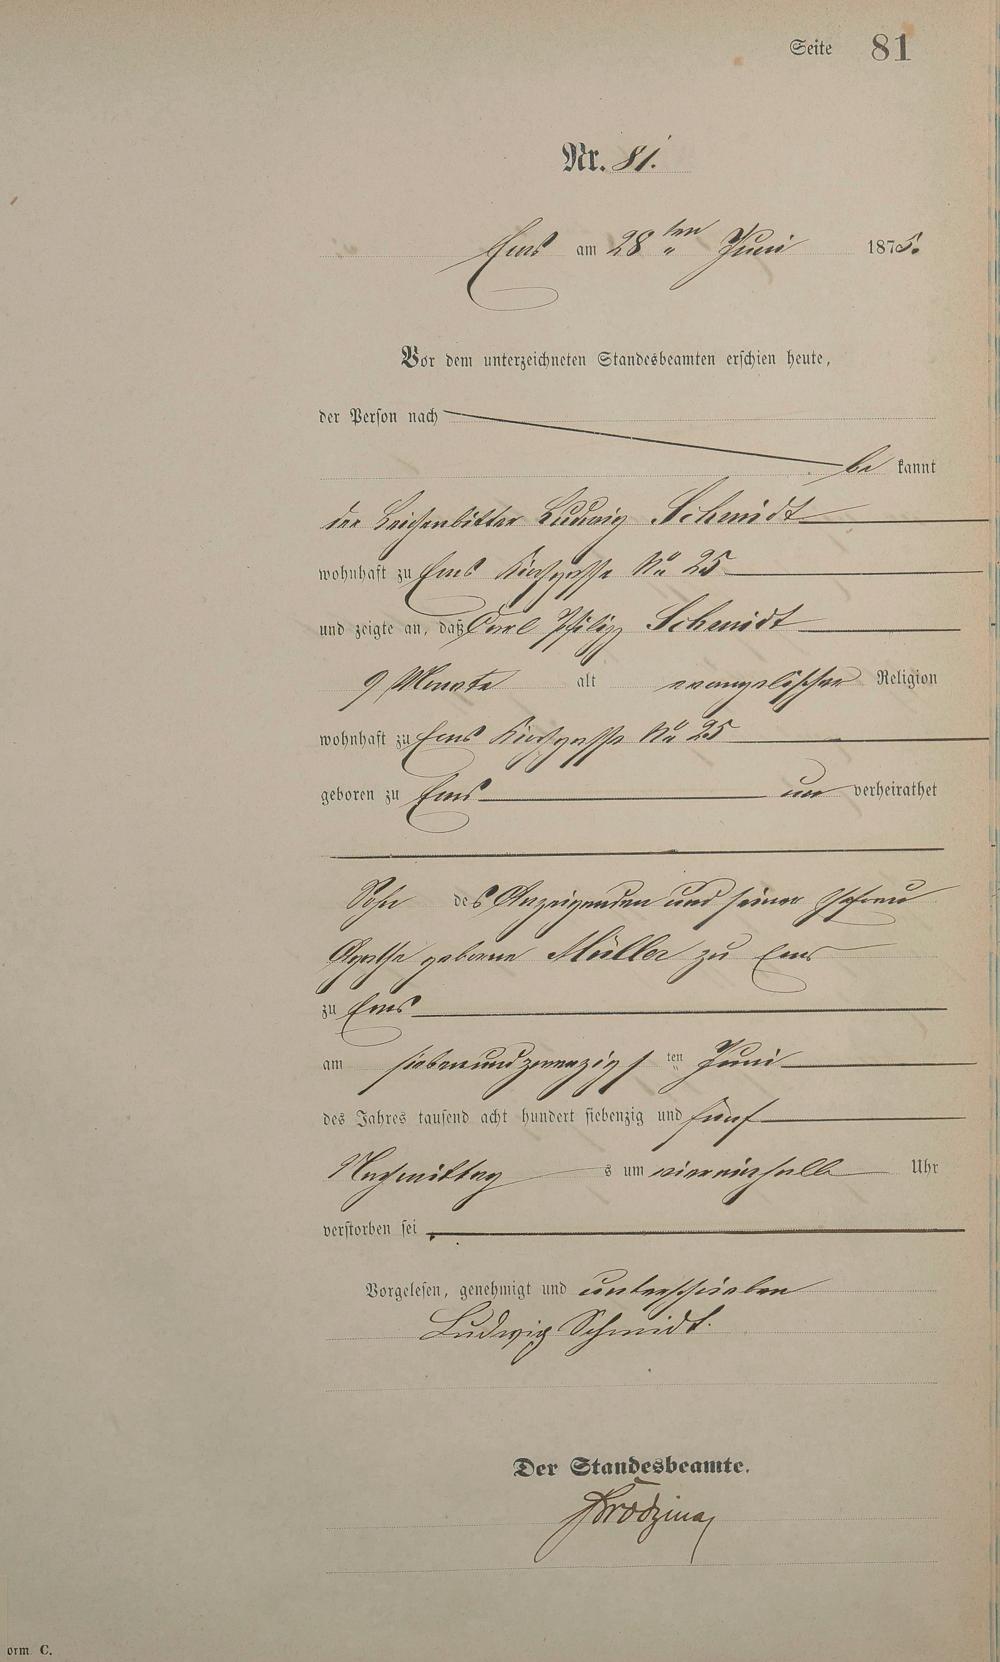 Seite 81
Nr. 81.
Ems am 28 ten Juni 1875.
Vor dem unterzeichneten Standesbeamten erschien heute,
der Person nach
be kannt
der Leichenbitter Ludwig Schmidt
wohnhaft zu Ems Kirchgasse No 25
und zeigte an, daß Carl Philipp Schmidt
9 Monate alt evangelischer Religion
wohnhaft zu Ems Kirchgasse No 25
geboren zu Ems un verheirathet
Sohn des Anzeigenden und seiner Ehefrau
Agathe geborne Müller zu Ems
zu Ems
am siebenundzwanzigs ten Juni
des Jahres tausend acht hundert siebenzig und fünf
Nachmittag s um viereinhalb Uhr
verstorben sei
Vorgelesen, genehmigt und unterschrieben
Ludwig Schmidt.
Der Standesbeamte.
orm C.